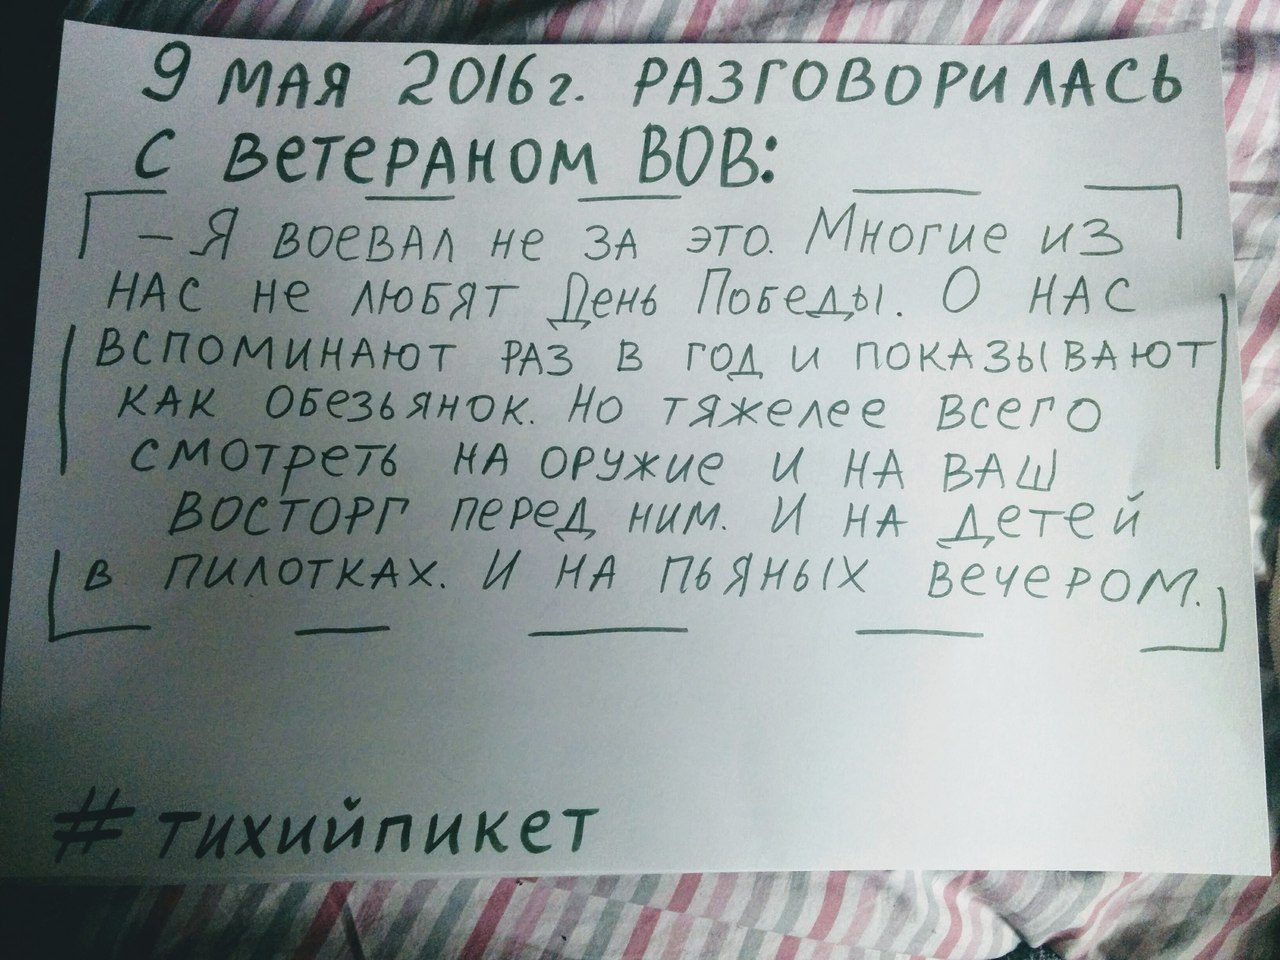 9 МАЯ 2016г. РАЗГОВОРИЛАСЬ
С ВЕТЕРАНОМ ВОВ:
– Я ВОЕВАЛ НЕ ЗА ЭТО. МНОГИЕ ИЗ
НАС НЕ ЛЮБЯТ ДЕНЬ ПОБЕДЫ. О НАС
ВСПОМИНАЮТ РАЗ В ГОД И ПОКАЗЫВАЮТ
КАК ОБЕЗЬЯНОК. НО ТЯЖЕЛЕЕ ВСЕГО
СМОТРЕТЬ НА ОРУЖИЕ И НА ВАШ
ВОСТОРГ ПЕРЕД НИМ. И НА ДЕТЕЙ
В ПИЛОТКАХ. И НА ПЬЯНЫХ ВЕЧЕРОМ.
#ТИХИЙПИКЕТ